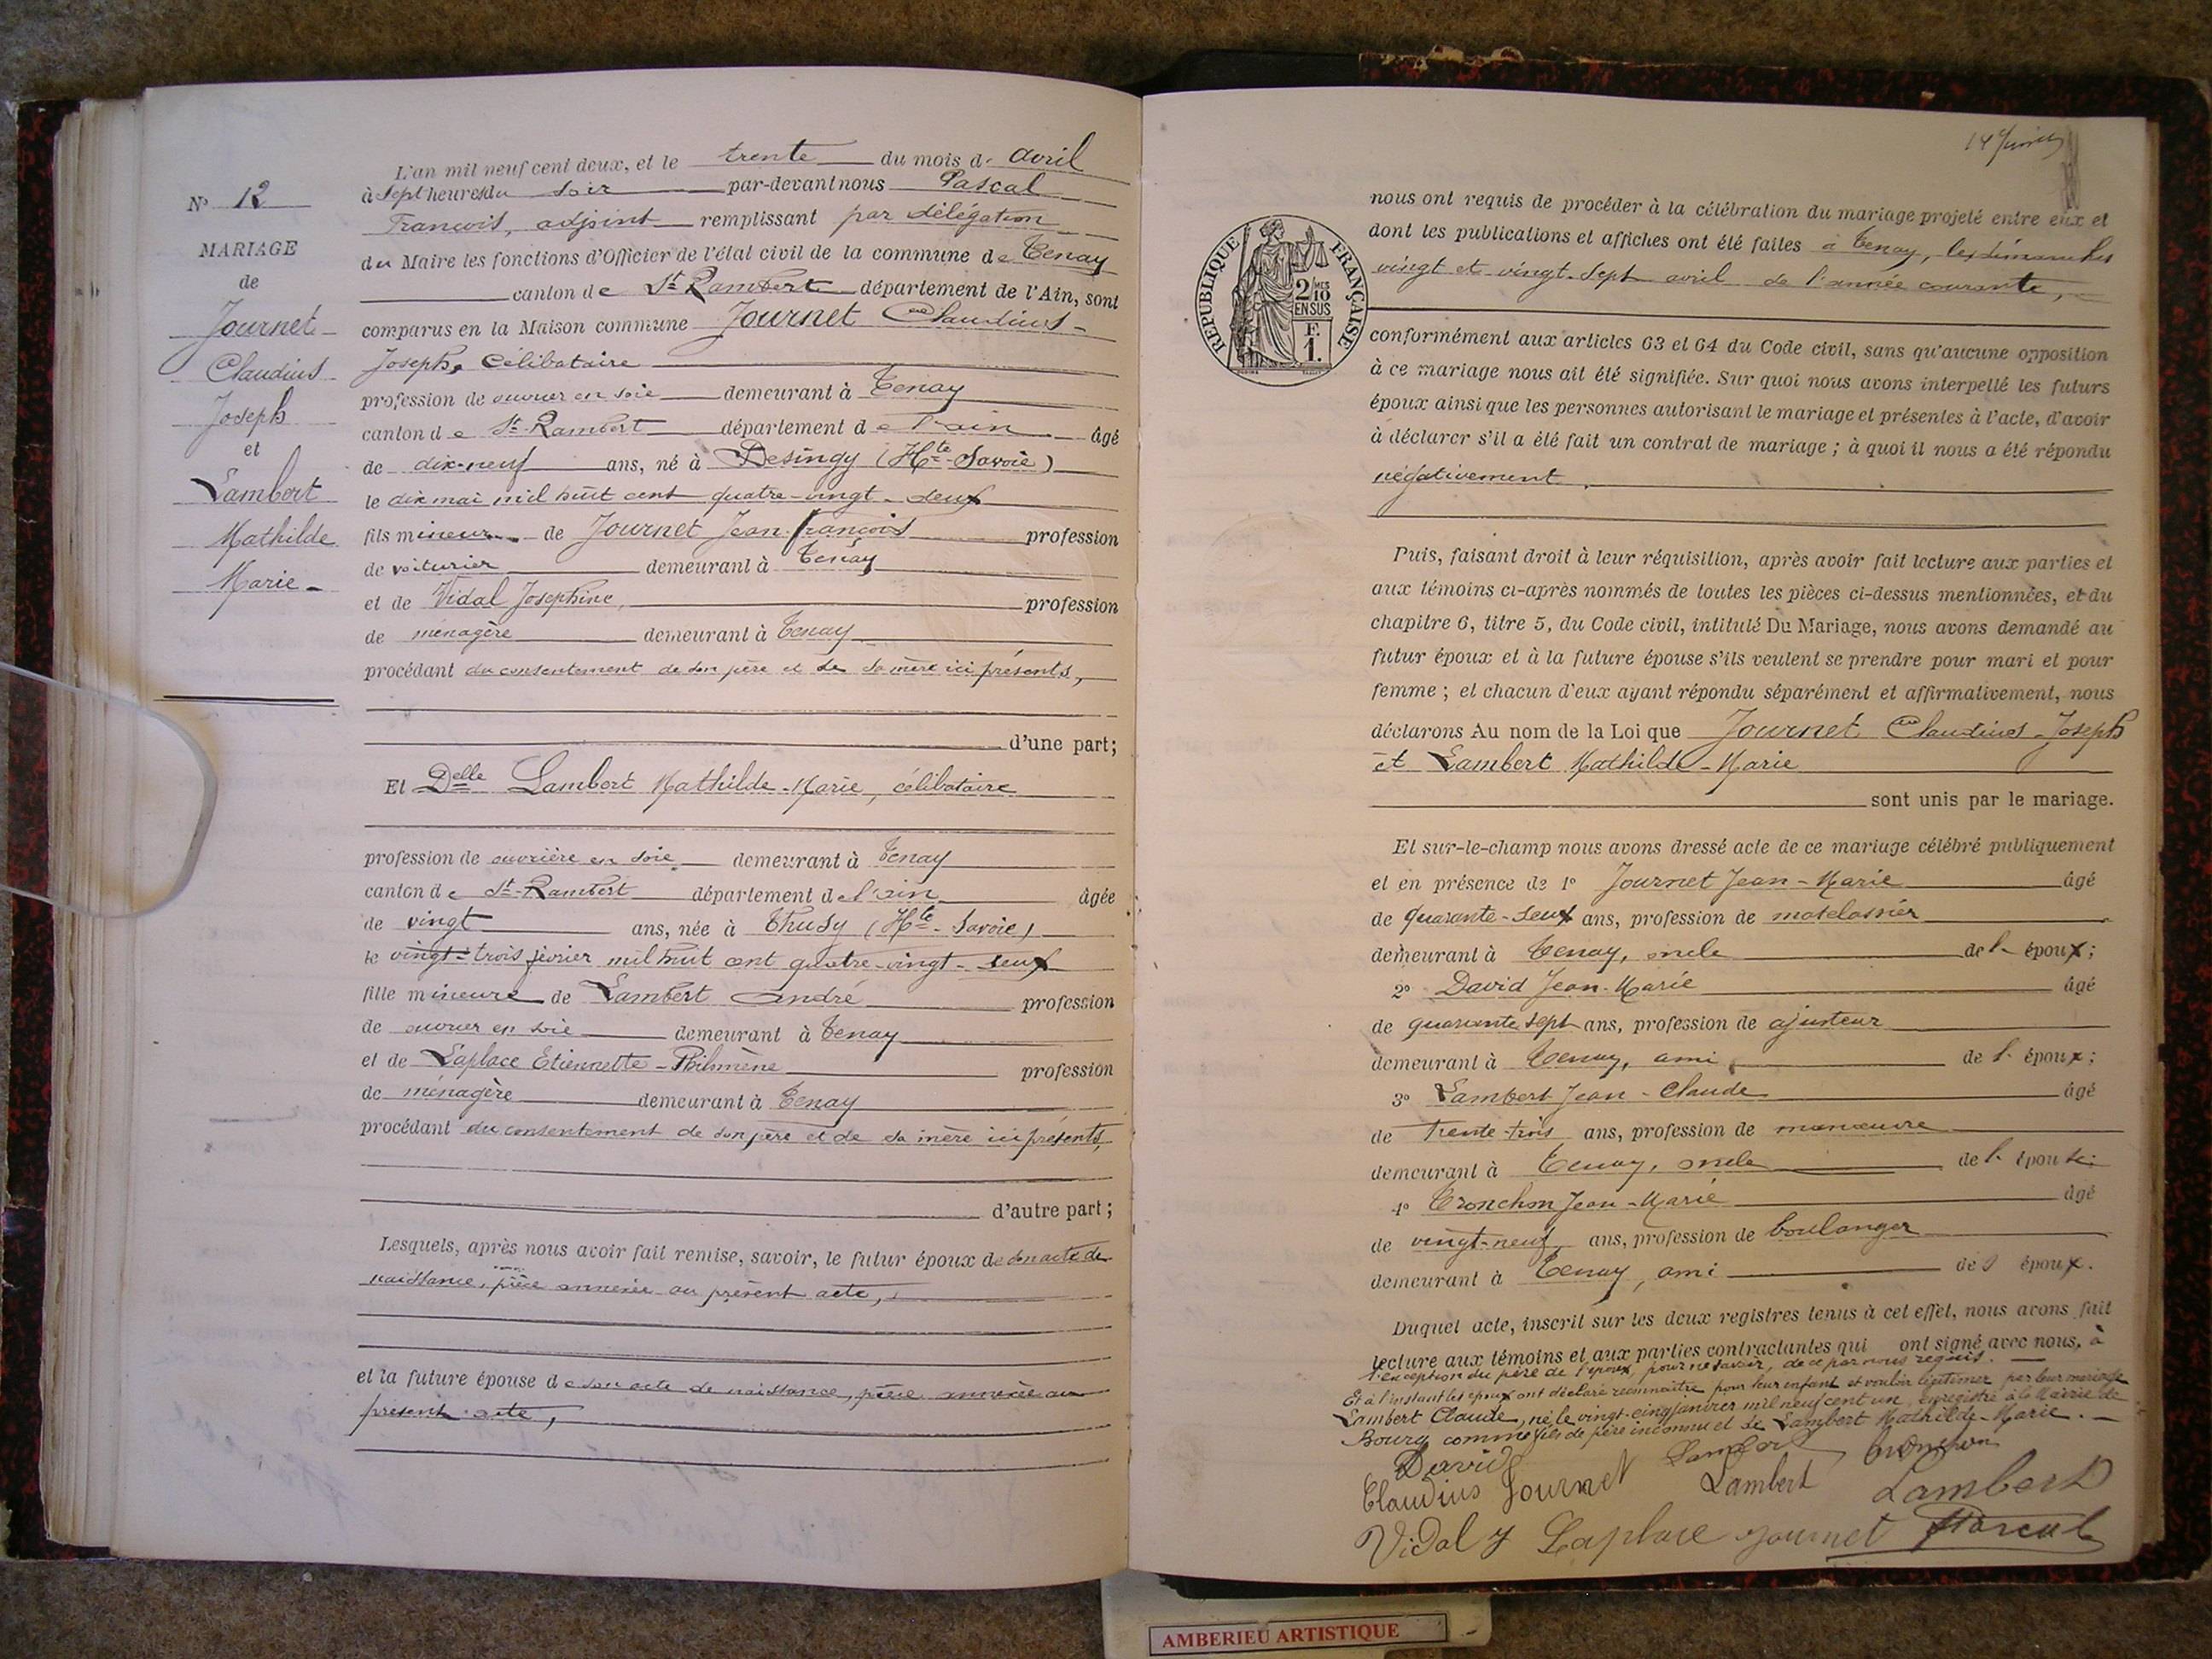 N° 12
MARIAGE
de
Journet
Claudius
Joseph
et
Lambert
Mathilde
Marie
L'an mil neuf cent deux, et le trente du mois d'avril
à sept heures du soir par-devant nous Pascal
François, adjoint remplissant par délégation
du Maire les fonctions d'Officier de l'état civil de la commune de Tenay
canton de St Rambert département de l'Ain, sont
comparus en la Maison commune Journet Claudius
Joseph, célibataire
profession de ouvrier en soie demeurant à Tenay
canton de St-Rambert département de l'ain âgé
de dix-neuf ans, né à Desingy (Hte-Savoie)
le dix mai mil huit cent quatre-vingt-deux
fils mineur de Journet Jean François profession
de voiturier demeurant à Tenay
et de Vidal Josephine, profession
de ménagère demeurant à Tenay
procédant du consentement de son père et de sa mère ici présents,
d'une part;
Et Delle Lambert Mathilde-Marie, célibataire
profession de ouvrière en soie demeurant à Tenay
canton de St-Rambert département de l'ain âgée
de vingt ans, née à Thusy (Hte-Savoie)
le vingt-trois février mil huit cent quatre-vingt-deux
fille mineure de Lambert André profession
de ouvrier en soie demeurant à Tenay
et de Laplace Etiennette-Philomène profession
de ménagère demeurant à Tenay
procédant du consentement de son père et de sa mère ici présents,
d'autre part;
Lesquels, après nous avoir fait remise, savoir, le futur époux de son acte de
naissance, pièce annexée au présent acte,
et la future épouse de son acte de naissance, pièce annexée au
présent acte,
14
RÉPUBLIQUE FRANÇAISE
2 MES
10
EN SUS
F.
1.
nous ont requis de procéder à la célébration du mariage projeté entre eux et
dont les publications et affiches ont été faites à Tenay, les dimanches
vingt et vingt-sept avril de l'année courante,
conformément aux articles 63 et 64 du Code civil, sans qu'aucune opposition
à ce mariage nous ait été signifiée. Sur quoi nous avons interpellé les futurs
époux ainsi que les personnes autorisant le mariage et présentes à l'acte, d'avoir
à déclarer s'il a été fait un contrat de mariage; à quoi il nous a été répondu
négativement.
Puis, faisant droit à leur réquisition, après avoir fait lecture aux parties et
aux témoins ci-après nommés de toutes les pièces ci-dessus mentionnées, et du
chapitre 6, titre 5, du Code civil, intitulé Du Mariage, nous avons demandé au
futur époux et à la future épouse s'ils veulent se prendre pour mari et pour
femme; et chacun d'eux ayant répondu séparément et affirmativement, nous
déclarons Au nom de la Loi que Journet Claudius-Joseph
et Lambert Mathilde-Marie
sont unis par le mariage.
Et sur-le-champ nous avons dressé acte de ce mariage célébré publiquement
et en présence de 1° Journet Jean-Marie âgé
de quarante-deux ans, profession de matelassier
demeurant à Tenay, oncle de l'époux;
2° David Jean-Marie âgé
de quarante sept ans, profession de ajusteur
demeurant à Tenay, ami de l'époux;
3° Lambert Jean-Claude âgé
de trente-trois ans, profession de manœuvre
demeurant à Tenay, oncle de l'épouse;
4° Tronchon Jean-Marie âgé
de vingt-neuf ans, profession de boulanger
demeurant à Tenay, ami de l'époux.
Duquel acte, inscrit sur les deux registres tenus à cet effet, nous avons fait
lecture aux témoins et aux parties contractantes qui ont signé avec nous, à
l'exception du père de l'époux, pour ne savoir, de ce par nous requis.
Et à l'instant les époux ont déclaré reconnaître pour leur enfant et vouloir légitimer par leur mariage
Lambert Claude, né le vingt-cinq janvier mil neuf cent un, enregistré à la Mairie de
Bourg comme fils de père inconnu et de Lambert Mathilde-Marie.
David Lambert Tronchon
Claudius Journet Lambert Lambert
Vidal J Laplace Journet FPascal
AMBERIEU ARTISTIQUE